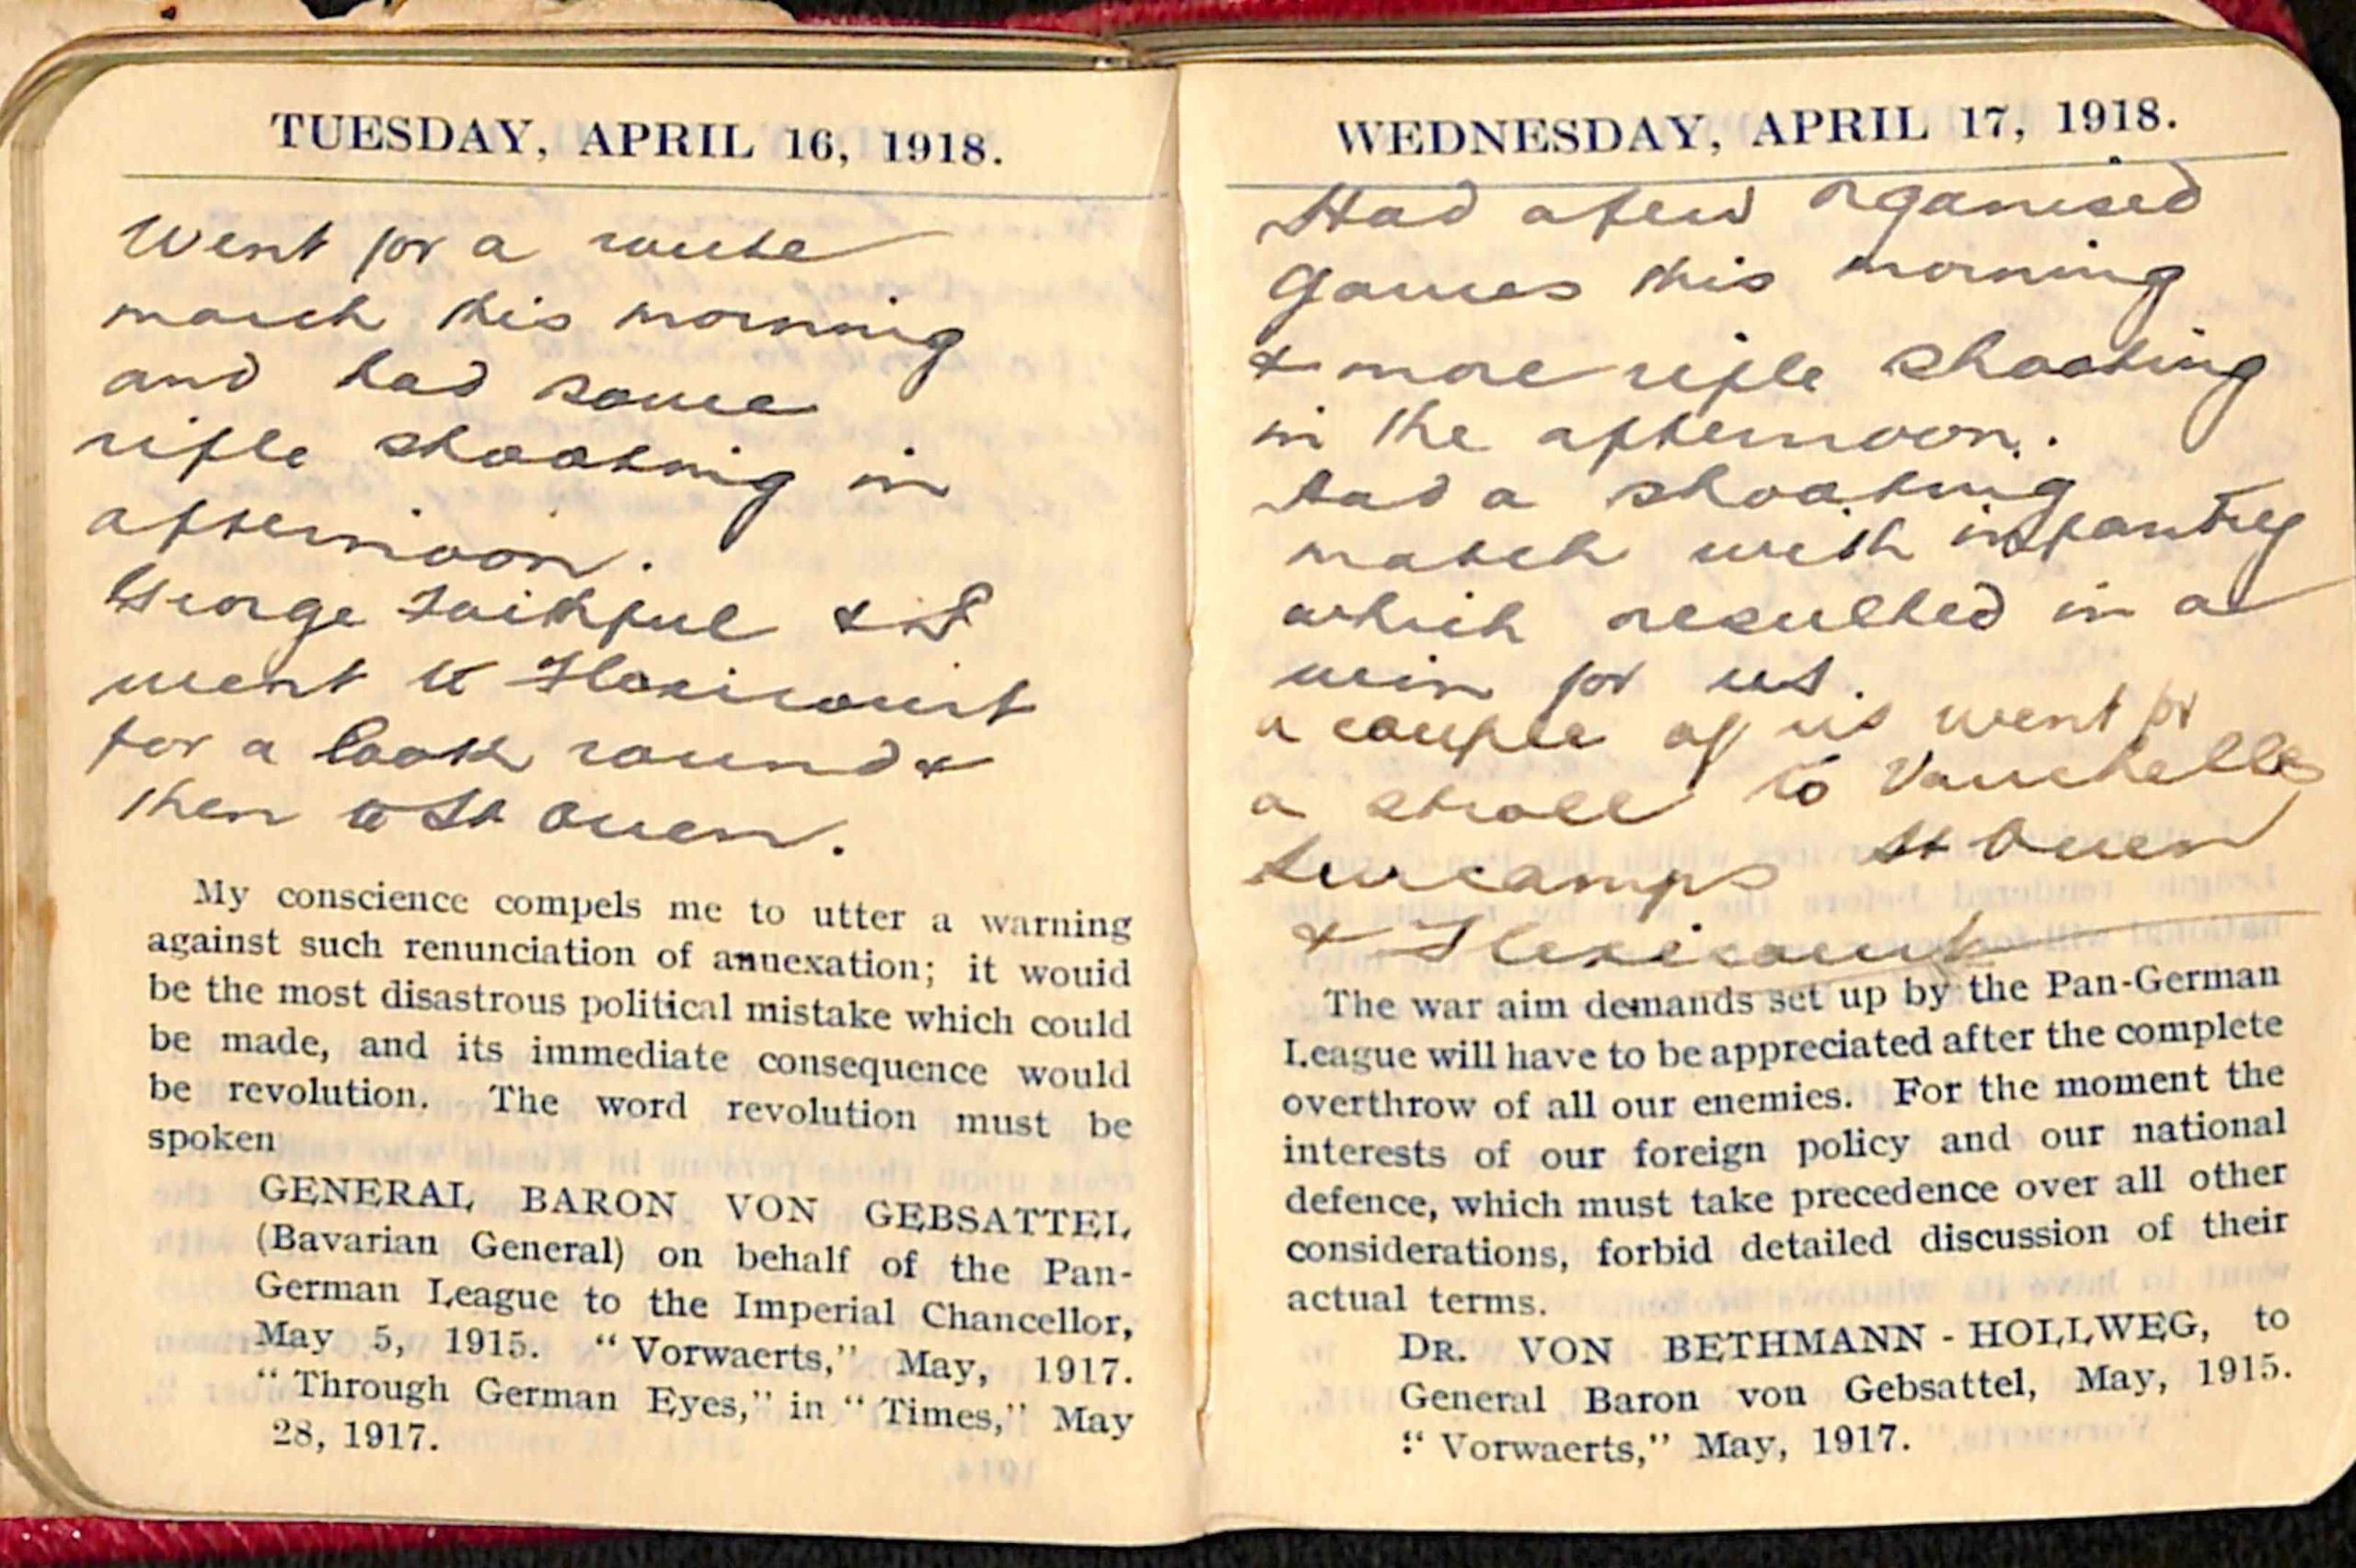 TUESDAY, APRIL 16, 1918.
Went for a route
march this morning
and had some
rifle shooting in
afternoon.
George Faithful & I
went to Flexicourt
for a look round &
then to St Ouen.
My conscience compels me to utter a warning
against such renunciation of annexation; it wouid
be the most disastrous political mistake which could
be made, and its immediate consequence would
be revolution. The word revolution must be
spoken
GENERAL BARON VON GEBSATTEL
(Bavarian General) on behalf of the Pan-
German League to the Imperial Chancellor,
May 5, 1915. "Vorwaerts," May, 1917.
"Through German Eyes," in "Times," May
28, 1917.
WEDNESDAY, APRIL 17, 1918.
Had a few organised
games this morning
& more rifle shooting
in the afternoon.
had a shooting
match with infantry
which resulted in a
win for us.
a couple of us went for
a stroll to Vauchelles
Surcamps St Ouen
& Flexicourt
The war aim demands set up by the Pan-German
League will have to be appreciated after the complete
overthrow of all our enemies. For the moment the
interests of our foreign policy and our national
defence, which must take precedence over all other
considerations, forbid detailed discussion of their
actual terms.
DR. VON BETHMANN-HOLLWEG, to
General Baron von Gebsattel, May, 1915.
"Vorwaerts," May, 1917.